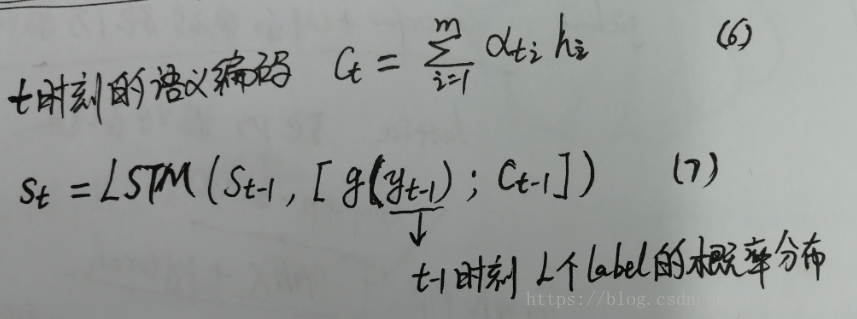 t时刻的语义编码 Ct = ∑_{i=1}^{m} α_{ti} h_i (6)
S_t = LSTM(S_{t-1}, [g(y_{t-1}); C_{t-1}]) (7)
↓
t-1时刻 L个label的概率分布
https://blog.csdn.